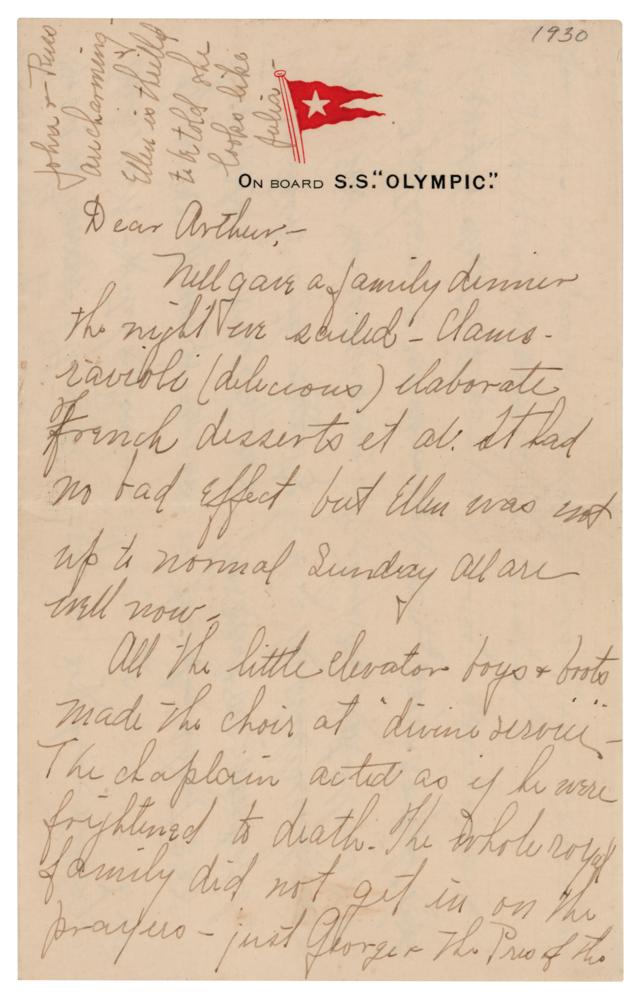 1930
John &
are charming
Ellen is thrilled
to be told she
looks like
Julia -
ON BOARD S.S. "OLYMPIC."
Dear Arthur, -
Nell gave a family dinner
the night we sailed - Clams -
ravioli (delicious) elaborate
French desserts et al. It had
no bad effect but Ellen was not
up to normal Sunday All are
well now -
All the little elevator boys & boots
made the choir at "divine service" -
The chaplain acted as if he were
frightened to death. The whole royal
family did not get in on the
prayers - just George & the Pres of the